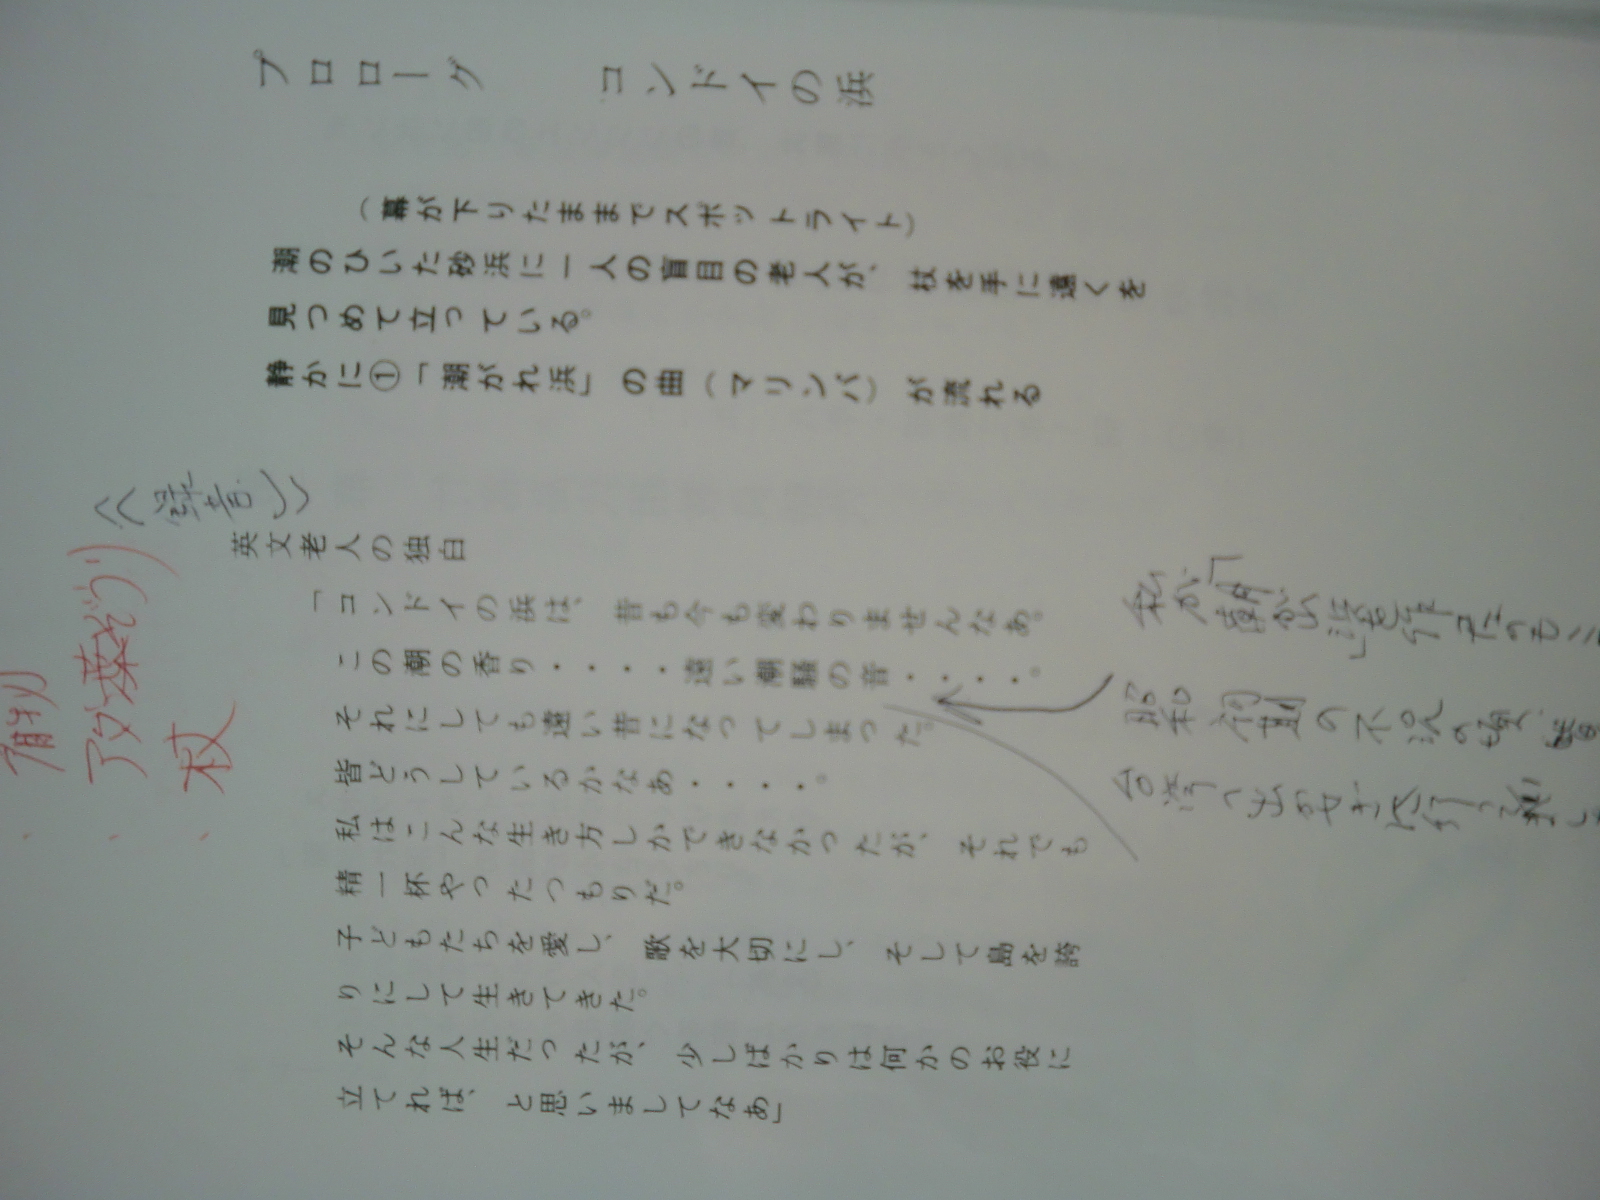 プロローグ　コンドイの浜
（幕が下りたままでスポットライト）
潮のひいた砂浜に一人の盲目の老人が、杖を手に遠くを
見つめて立っている。
静かに①「潮がれ浜」の曲（マリンバ）が流れる
英文老人の独白
「コンドイの浜は、昔も今も変わりませんなあ。
この潮の香り・・・・遠い潮騒の音・・・・。
それにしても遠い昔になってしまった。
皆どうしているかなあ・・・・。
私はこんな生き方しかできなかったが、それでも
精一杯やったつもりだ。
子どもたちを愛し、歌を大切にし、そして島を誇
りにして生きてきた。
そんな人生だったが、少しばかりは何かのお役に
立てれば、と思いましてなあ」
（録音）
着物
アダン葉ぞうり
杖
私が「潮がれ浜」を作ったのも
昭和初期の不況の頃
台湾へ出かせぎに行く